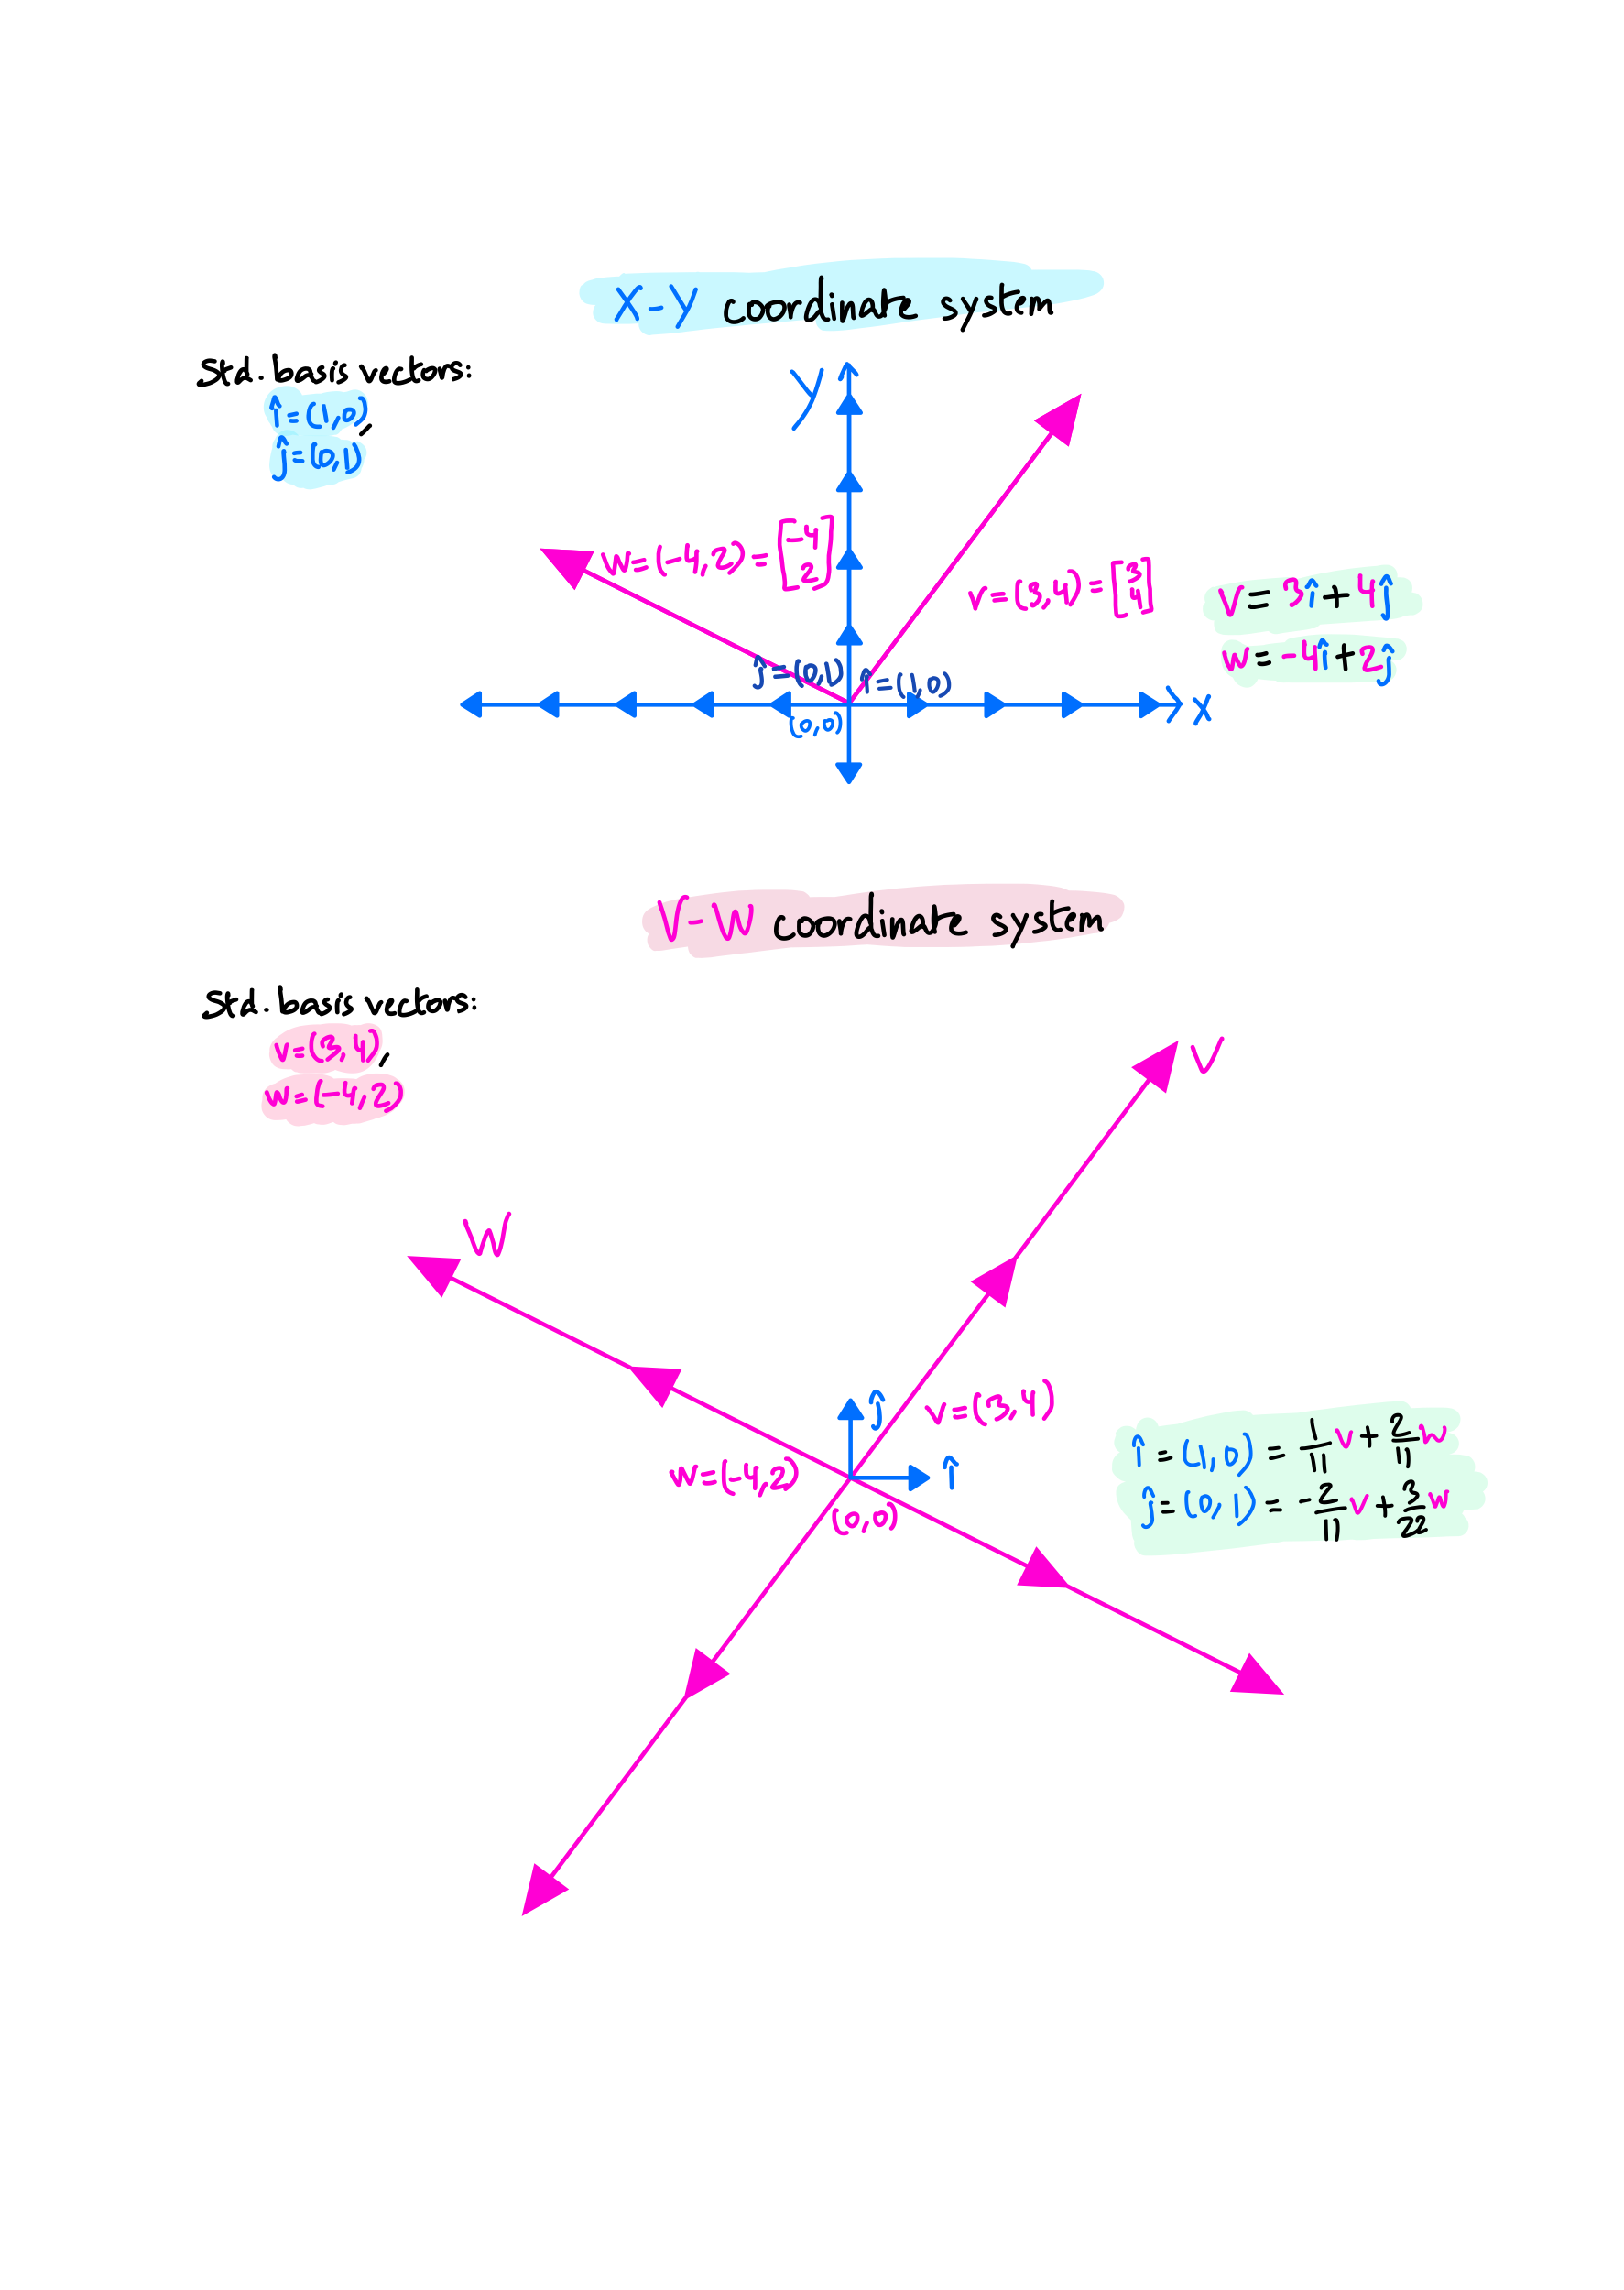 X-Y coordinate system
Std. basis vectors:
î=(1,0),
ĵ=(0,1)
y
w=(-4,2)=[-4 2]
v=(3,4)=[3 4]
v=3î+4ĵ
w=-4î+2ĵ
ĵ=(0,1) î=(1,0)
(0,0)
X
V-W coordinate system
Std. basis vectors:
v=(3,4),
w=(-4,2)
V
W
ĵ
v=(3,4)
w=(-4,2)
î
(0,0)
î=(1,0)=1/11v+2/11w
ĵ=(0,1)=-2/11v+3/22w